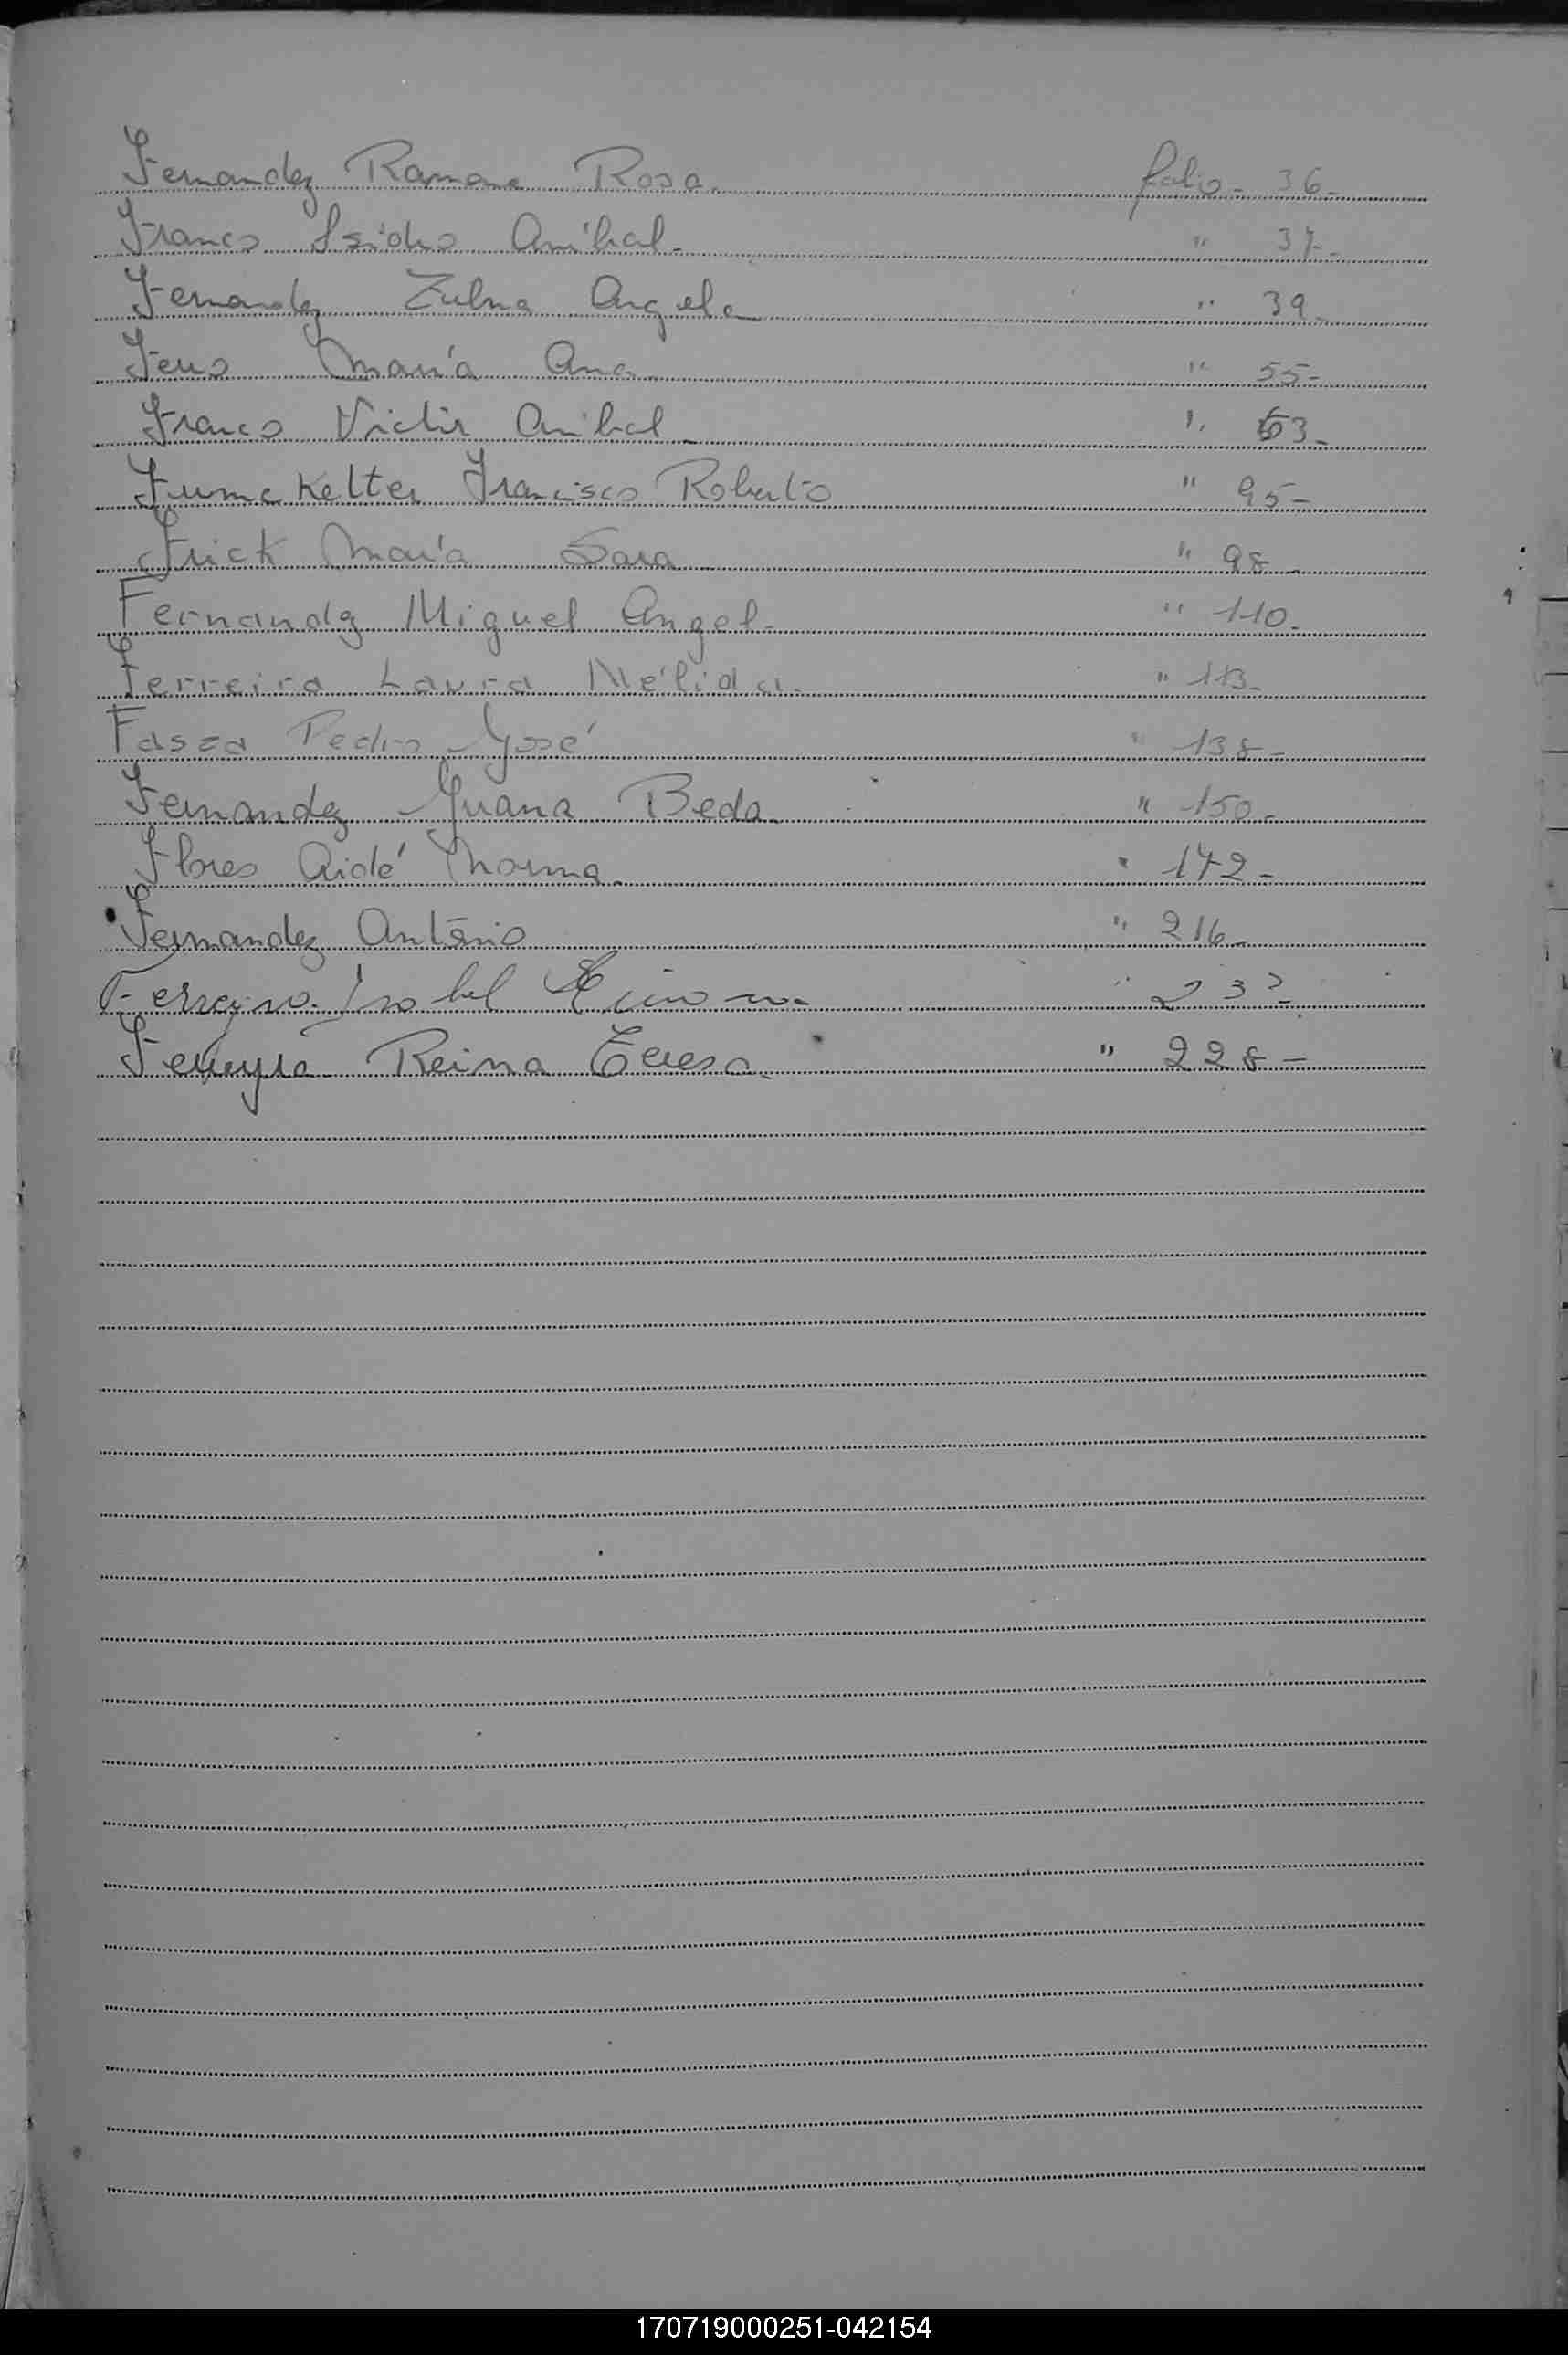 Fernandez Ramona Rosa. folio - 36 -
Franco Isidro Anibal - " 37 -
Fernandez Zulma Angela " 39 -
María Ana " 55 -
Franco Victir Anibal - " 63 -
Francisco Roberto " 95 -
Frick María Sara " 98 -
Fernandz Miguel Angel - " 110 -
Ferreira Laura Nélida. " 113 -
Fasza Pedro José " 138 -
Fernandez Juana Beda. " 150 -
Flores Aidé Norma. " 172 -
Fernandez Antonio " 216 -
Ferreyra. Isabel " 23
Ferreyra Reina Teresa. " 228 -
170719000251-042154